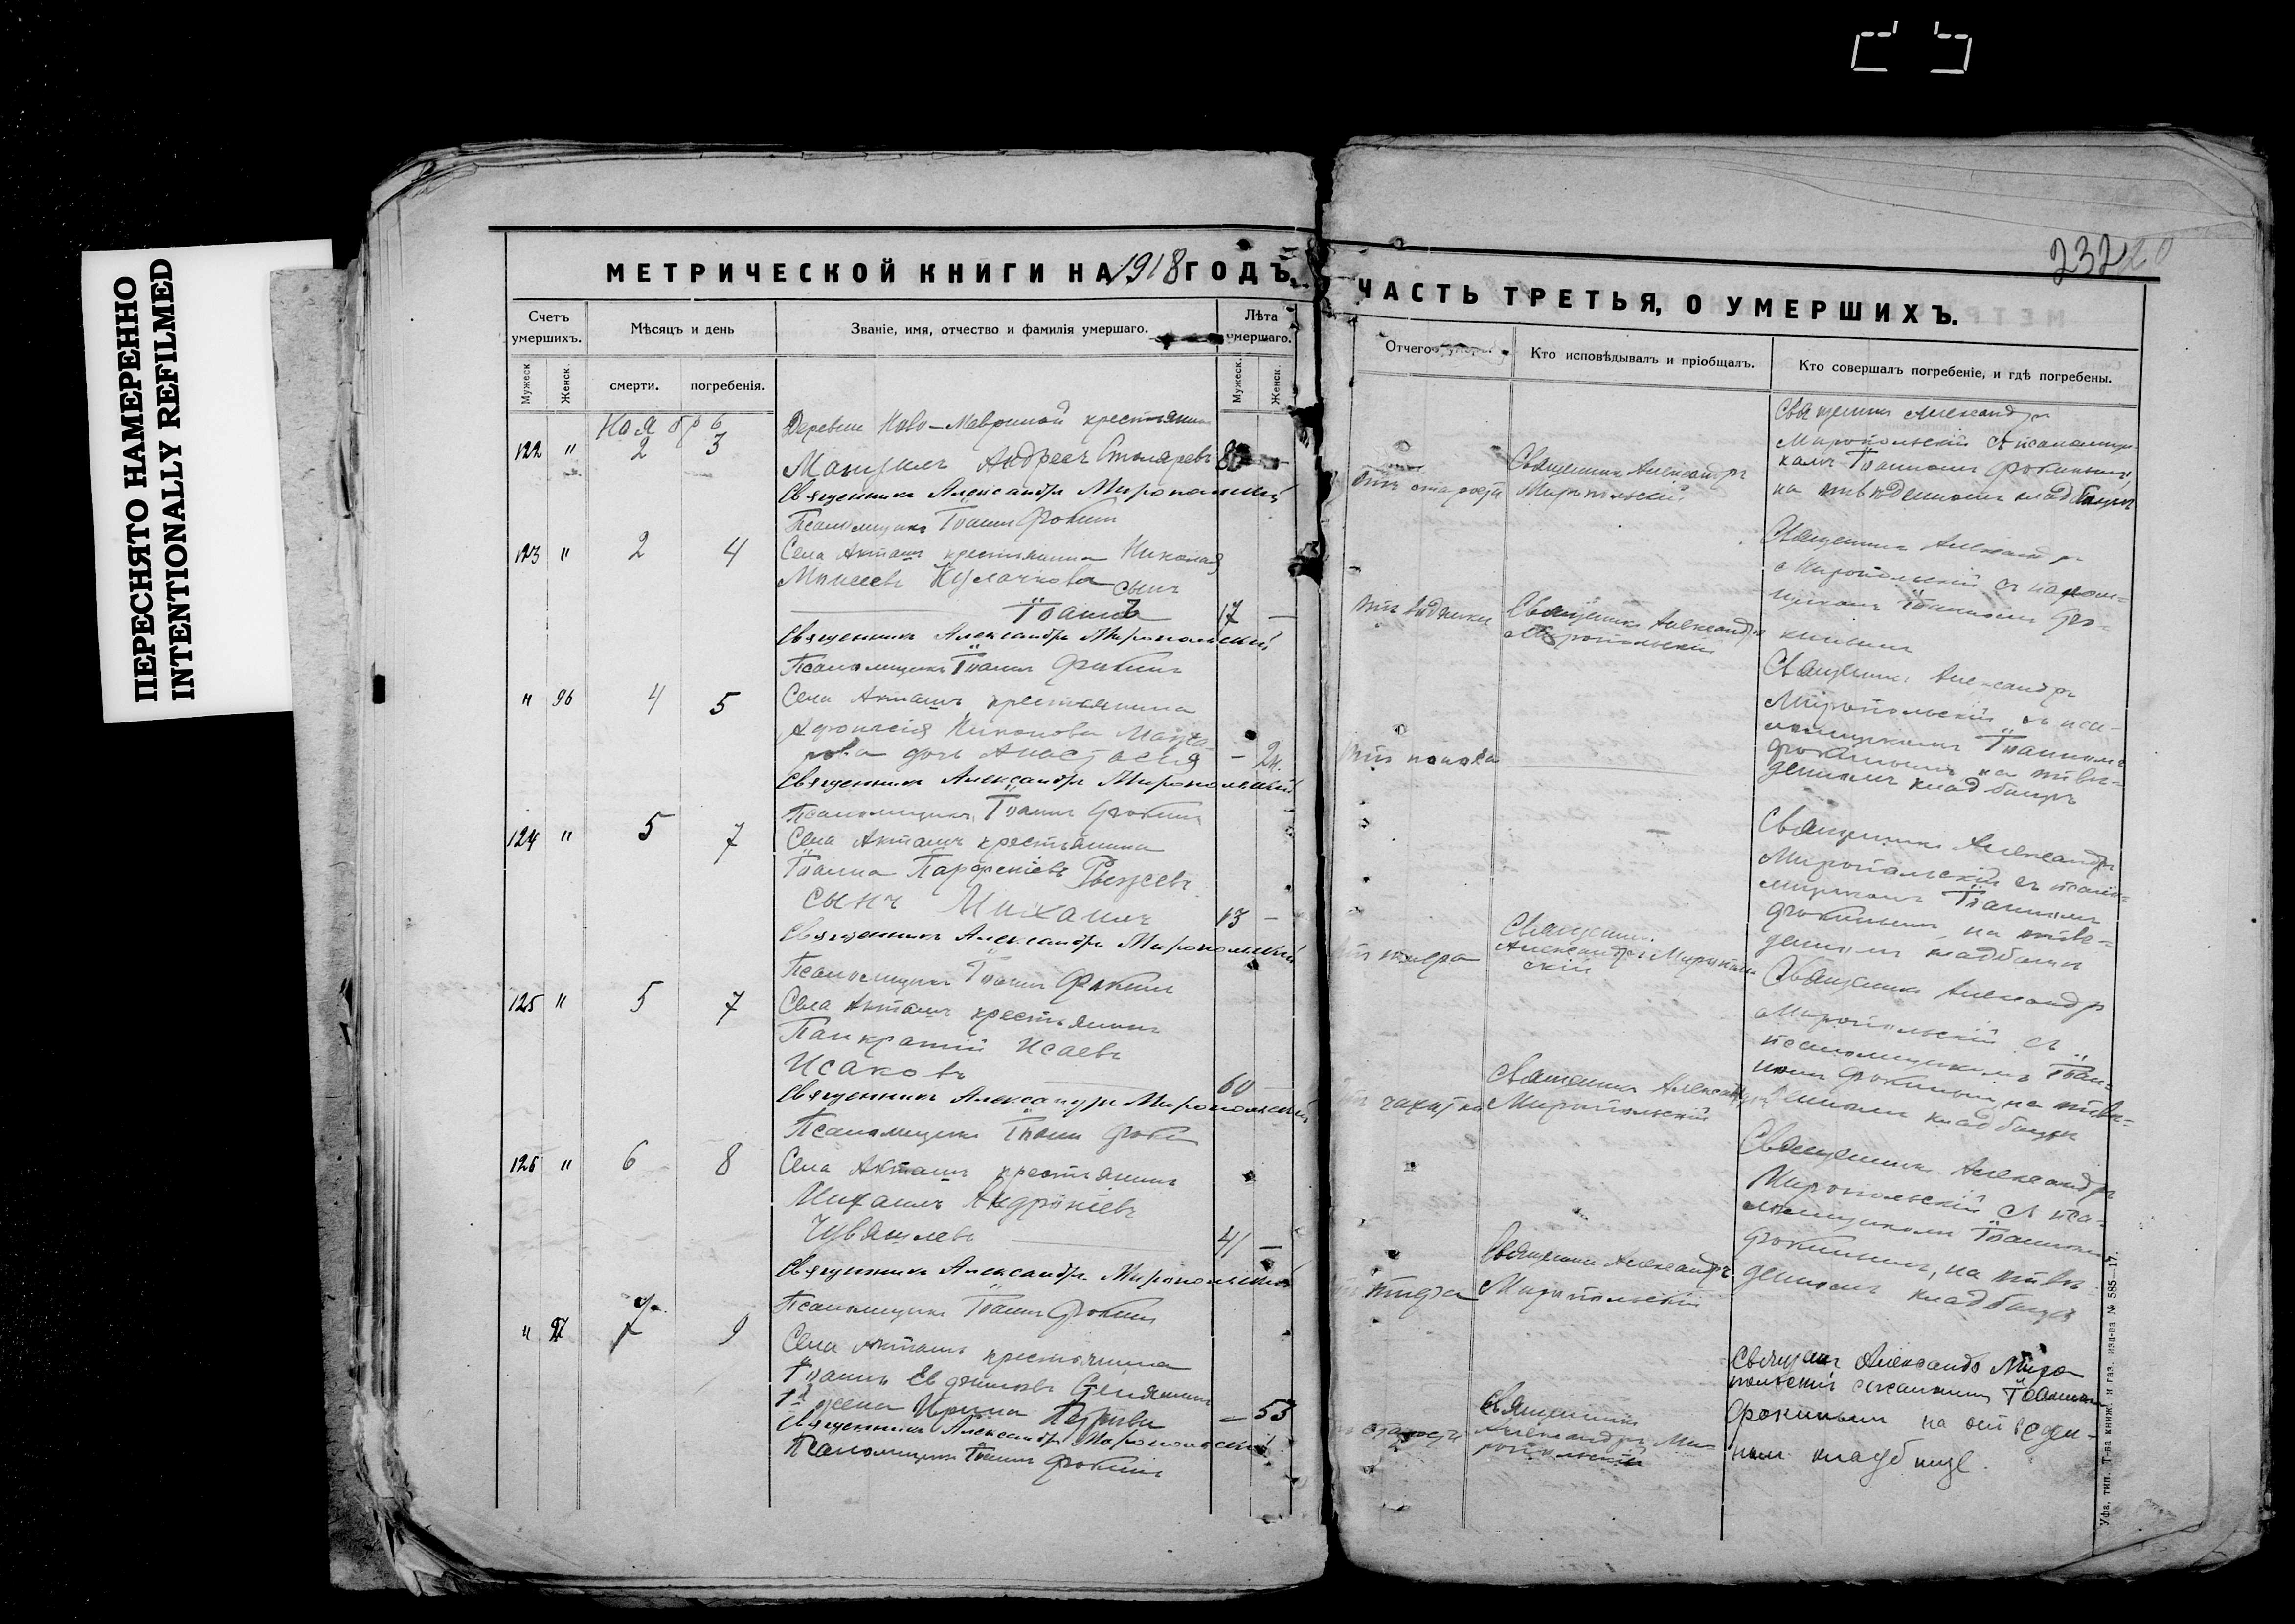 ПЕРЕСНЯТО НАМЕРЕННО
INTENTIONALLY REFILMED
МЕТРИЧЕСКОЙ КНИГИ НА 1918 ГОДЪ,
Счетъ умершихъ.
Мѣсяцъ и день
Званіе, имя, отчество и фамилія умершаго.
Лѣта умершаго.
Мужеск.
Женск.
смерти.
погребенія.
Мужеск.
Женск.
Ноябрь
Деревни Ново-Мавриной крестьянинъ
122 " 2 3
Андреевъ Столяровъ 80 -
Священникъ Александръ Миропольскій
Псаломщикъ Іоаннъ Фокинъ
123 " 2 4 Села Акташъ крестьянина Николая
Моисеева Кулачкова сынъ
Іоаннъ 17 -
Священникъ Александръ Миропольскій
Псаломщикъ Іоаннъ Фокинъ
" 96 4 5 Села Акташъ крестьянина
Афонасія Никонова
дочь Анастасія -
Священникъ Александръ Миропольскій
Псаломщикъ Іоаннъ Фокинъ
124 " 5 7 Села Акташъ крестьянина
Іоанна Парфеніева
сынъ Михаилъ 13 -
Священникъ Александръ Миропольскій
Псаломщикъ Іоаннъ Фокинъ
125 " 5 7 Села Акташъ крестьянинъ
Панкратій Исаевъ
Исаковъ 60
Священникъ Александръ Миропольскій
Псаломщикъ Іоаннъ
126 " 6 8 Села Акташъ крестьянинъ
Михаилъ Андроніевъ
41 -
Священникъ Александръ Миропольскій
Псаломщикъ Іоаннъ Фокинъ
" 97 7 9 Села Акташъ крестьянина
Іоанна Евфимова
жена Ирина - 53
Священникъ Александръ Миропольскій
Псаломщикъ Іоаннъ Фокинъ
232
ЧАСТЬ ТРЕТЬЯ, О УМЕРШИХЪ.
Отчего
Кто исповѣдывалъ и пріобщалъ.
Кто совершалъ погребеніе, и гдѣ погребены.
отъ старости
Священникъ Александръ
Миропольскій
Священникъ Александръ
Миропольскій съ псаломщи-
комъ Іоанномъ Фокинымъ
на отведенномъ кладбищѣ
отъ водянки
Священникъ Александръ
Миропольскій
Священникъ Александръ
Миропольскій съ псалом-
щикомъ Іоанномъ Фо-
кинымъ
отъ поноса
Священникъ Александръ
Миропольскій съ пса-
ломщикомъ Іоанномъ
Фокинымъ на отве-
денномъ кладбищѣ
отъ тифа
Священникъ
Александръ Миропольскій
Священникъ Александръ
Миропольскій съ псалом-
щикомъ Іоанномъ
Фокинымъ на отве-
денномъ кладбищѣ
чахотки
Священникъ Александръ
Миропольскій
Священникъ Александръ
Миропольскій съ
псаломщикомъ Іоан-
номъ Фокинымъ на отве-
денномъ кладбищѣ
тифа
Священникъ Александръ
Миропольскій
Священникъ Александръ
Миропольскій съ пса-
ломщикомъ Іоанномъ
Фокинымъ, на отве-
денномъ кладбищѣ
старости
Священникъ
Александръ Ми-
ропольскій
Священникъ Александръ Миро-
польскій Іоанномъ
Фокинымъ на отведен-
номъ кладбищѣ.
Уфа, тип. Т-ва книж. и газ. изд-ва № 585—17.